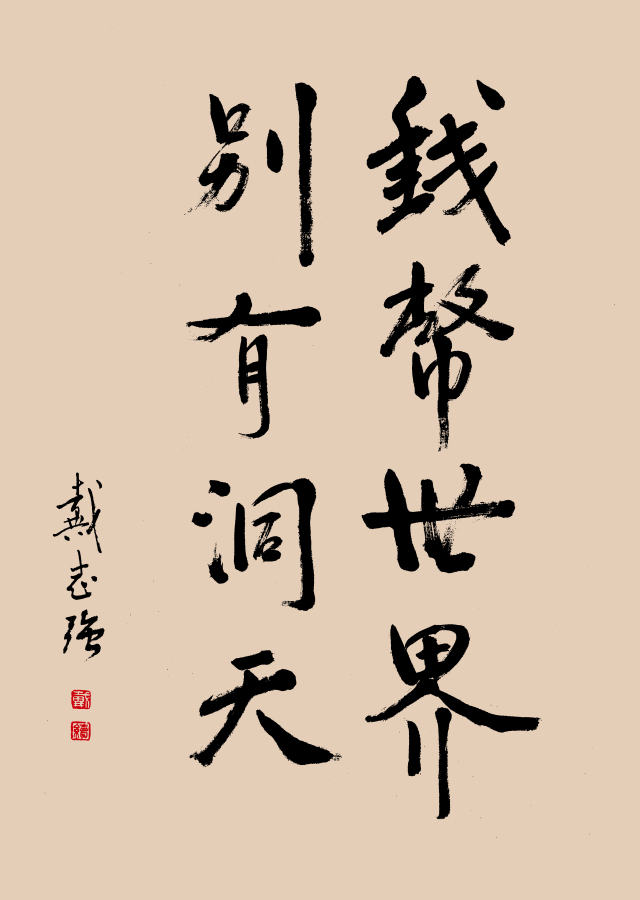 錢幣世界
别有洞天
戴志强